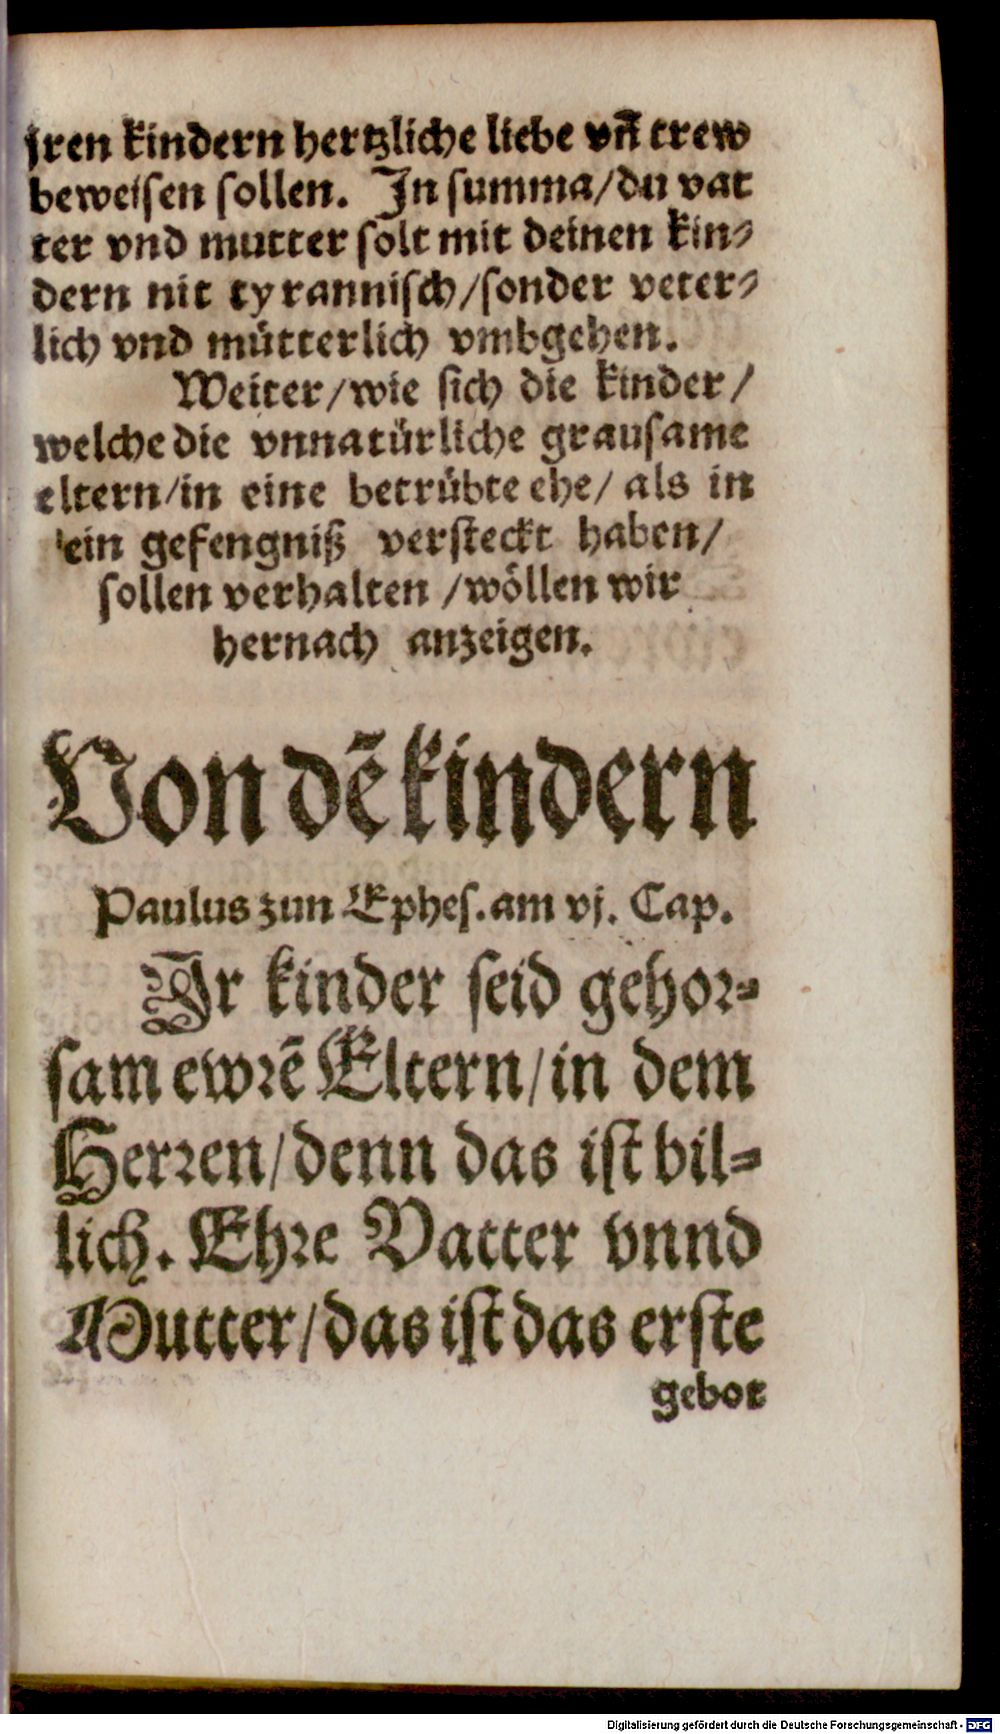 jren kindern hertzliche liebe vn̄ trew
beweisen sollen. In summa/du vat
ter vnd mutter solt mit deinen kin-
dern nit tyrannisch/sonder veter-
lich vnd mütterlich vmbgehen.
Weiter/wie sich die kinder/
welche die vnnatürliche grausame
eltern/in eine betrübte ehe/als in
ein gefengniß versteckt haben/
sollen verhalten/wöllen wir
hernach anzeigen.
Von dē kindern
Paulus zun Ephes. am vj. Cap.
Ir kinder seid gehor-
sam ewrē Eltern/in dem
Herren/denn das ist bil-
lich. Ehre Vatter vnnd
Mutter/das ist das erste
gebot
Digitalisierung gefördert durch die Deutsche Forschungsgemeinschaft - DFG